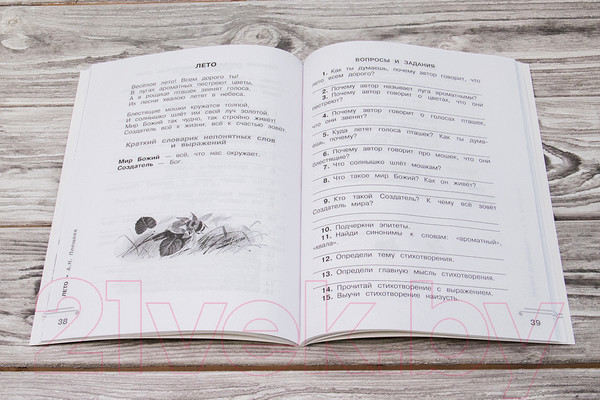 ЛЕТО
Весёлое лето! Всем дорого ты!
В лугах ароматных пестреют цветы,
А в рощице пташек звенят голоса,
Их песни хвалою летят в небеса.
Блестящие мошки кружатся толпой,
И солнышко шлёт им свой луч золотой.
Мир Божий так чудно, так стройно живёт!
Создатель всё к жизни, всё к счастью зовёт.
Краткий словарик непонятных слов
и выражений
Мир Божий — всё, что нас окружает.
Создатель — Бог.
ЛЕТО • А.К.
38
ВОПРОСЫ И ЗАДАНИЯ
1. Как ты думаешь, почему автор говорит, что
лето всем дорого?
2. Почему автор называет луга ароматными?
3. Почему автор говорит о цветах, что они
пестреют?
4. Почему автор говорит о голосах пташек,
что они звенят?
5. Куда летят голоса пташек? Как ты дума-
ешь, почему?
6. Почему автор говорит про мошек, что они
блестящие?
7. Что солнышко шлёт мошкам?
8. Что такое мир Божий? Как он живёт?
9. Кто такой Создатель? К чему всё зовёт
Создатель мира?
10. Подчеркни эпитеты.
11. Найди синонимы к словам: «ароматный»,
«хвала».
12. Определи тему стихотворения.
13. Определи главную мысль стихотворения.
14. Прочитай стихотворение с выражением.
15. Выучи стихотворение наизусть.
39
21vek.by